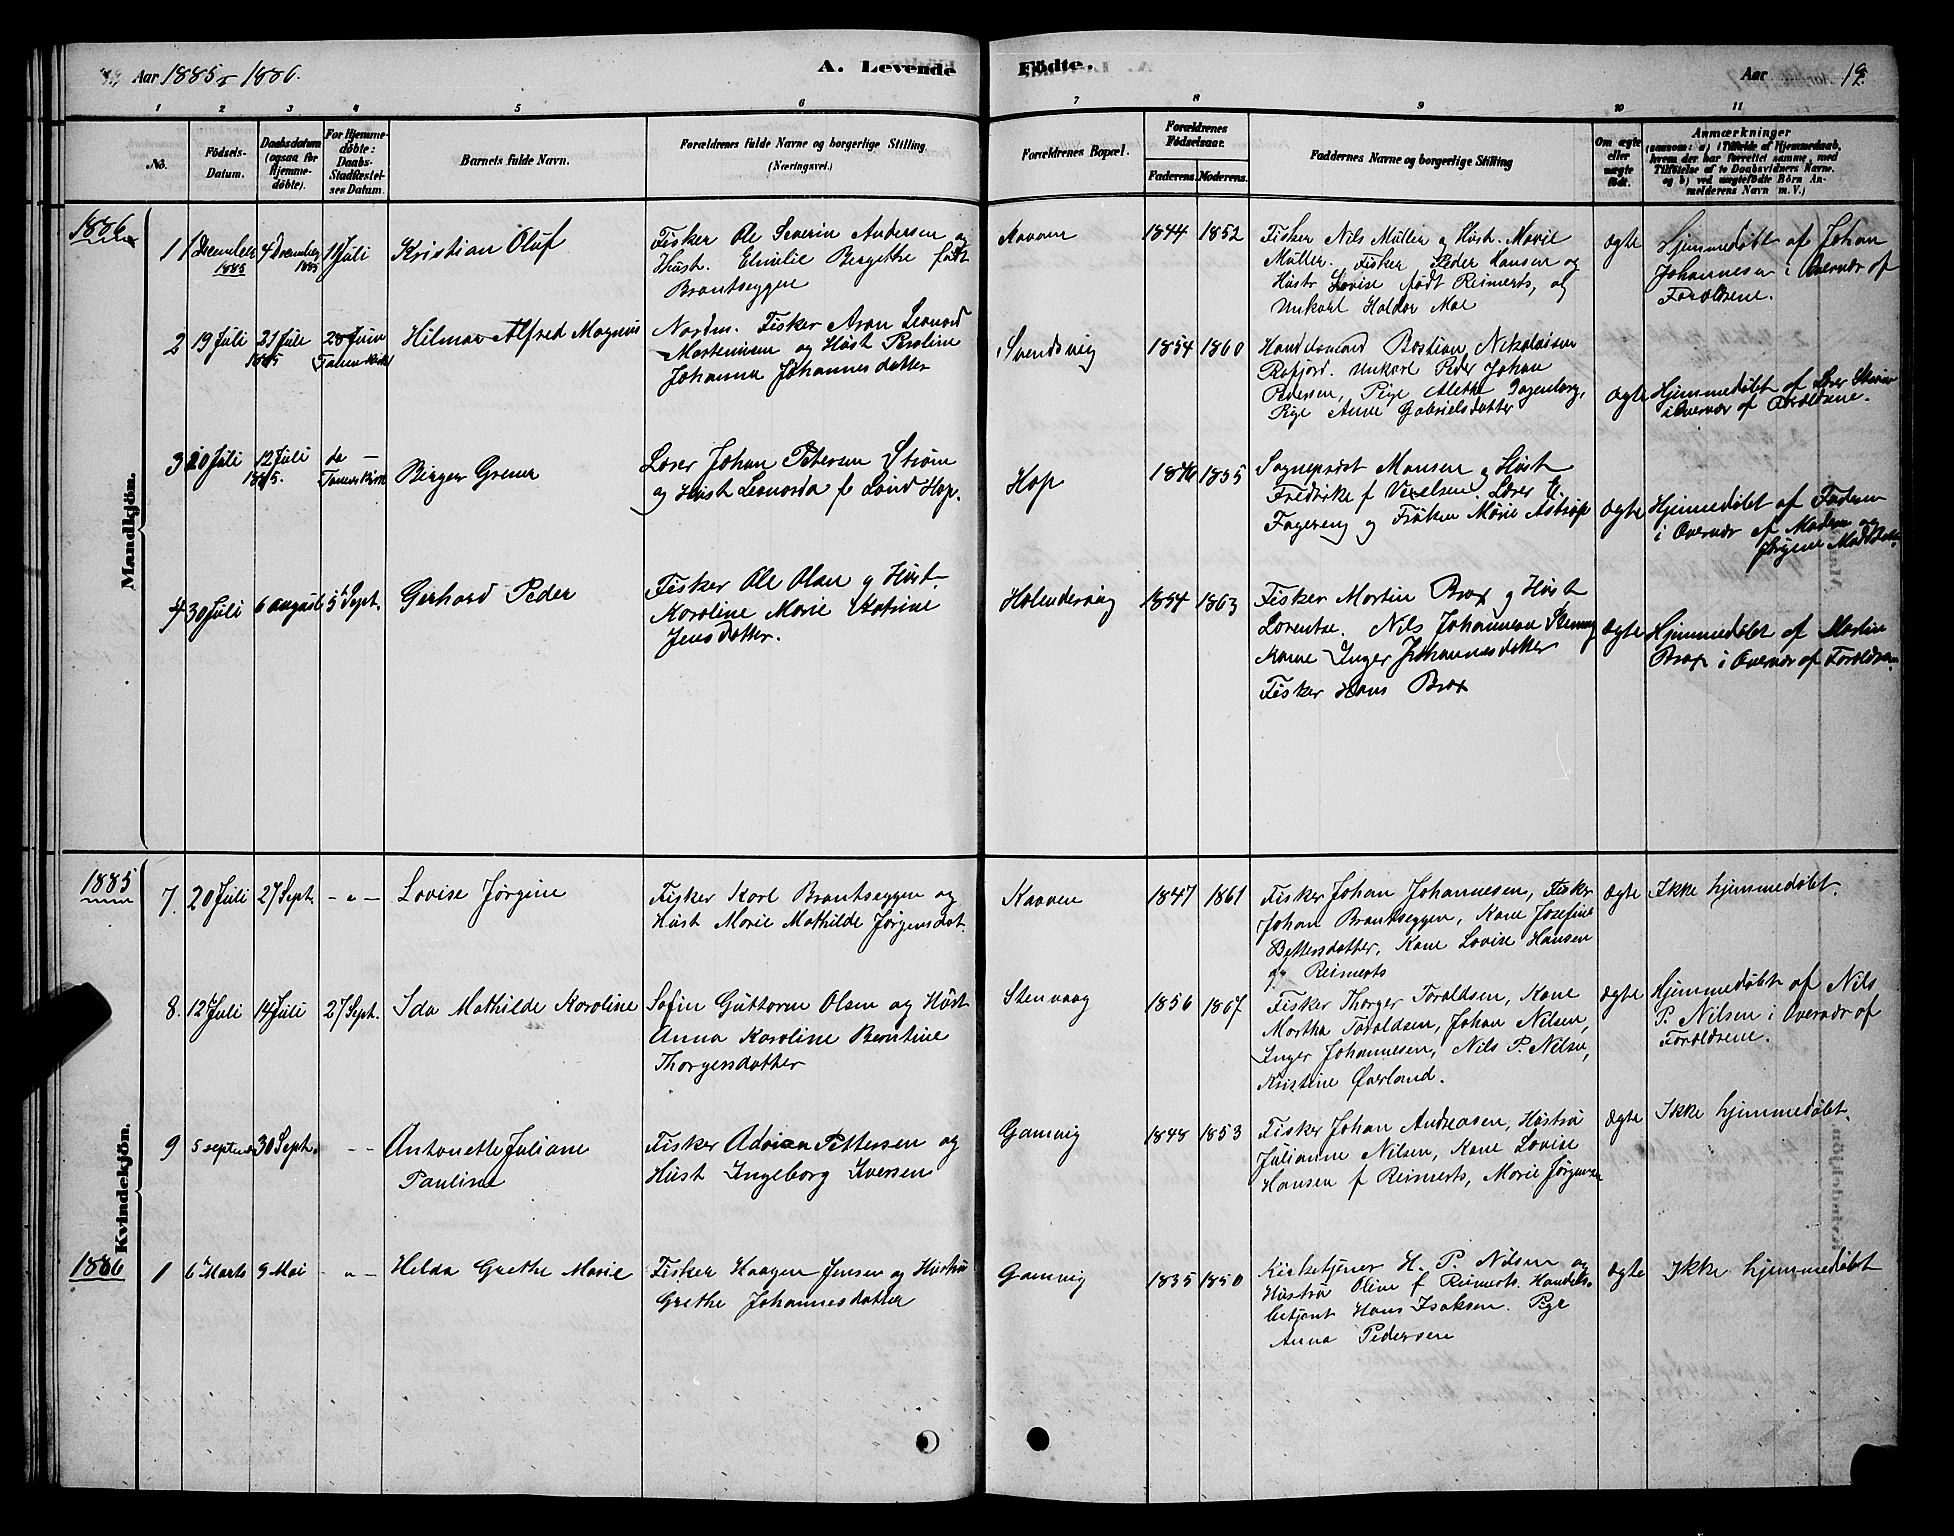 Aar 1885 & 1886.
A. Levende
Födte.
Aar
19.
1 2 3 4 5 6 7 8 9 10 11
No.
Födsels-
Datum.
Daabsdatum
(ogsaa for
Hjemme-
döbte).
For Hjemme-
döbte:
Daabs-
Stadfæstel-
ses Datum.
Barnets fulde Navn.
Forældrenes fulde Navne og borgerlige Stilling
(Næringsvei.)
Forældrenes Bopæl.
Forældrenes
Födselsaar.
Faderens. Moderens.
Faddernes Navne og borgerlige Stilling
Om ægte
eller
uægte
födt.
Anmærkninger
(saasom: a) i Tilfælde af Hjemmedaab,
hvem der har forrettet samme, med
Tilföielse af to Daabsvidners Navne.
og b) ved uægtefödte Börn An-
melderens Navn m. V.)
Mandkjön.
1886
1 1 December 1885 4 December 1885 11 Juli Kristian Oluf
Fisker Ole Severin Andersen og
Hust. Emilie Bergethe født
Brantseggen
Kaaven 1844 1852
Fisker Nils Müller og Hust. Marie
Müller. Fisker Peder Hansen og
Hustr Lovise født Reimerts, og
Unkarl Haldor Moe
ægte
Hjemmedøbt af Johan
Johannesen i Overvær af
Forældrene.
2 19 Juli 21 Juli 1885 Hilmar Alfred Magnus
Nordm. Fisker Aron Leonard
Mortensen og Hust Peroline
Johanna Johannesdatter
Svendsvig 1854 1860
Handelsmand Bastian Nikolaisen
Rafjord. Unkarl Peder Johan
Pedersen, Pige Alethe Ingeborg,
Pige Anne Gabrielsdatter
ægte
Hjemmedøbt af Lærer Strøm
i Overvær af Forældrene.
3 20 Juli 12 Juli 1885. do - Tanens Kirke Birger Grener
Lærer Johan Petersen Strøm
og Hust Leonarda f. Lund Hop.
Hop 1846 1855
Sogneprest Hansen og Hust
Fredrikke f Vexelsen. Lærer E.
Fagereng og Frøken Marie Astrup
ægte
Hjemmedøbt af Faderen
i Overvær af Moderen og
Jørgine
4 30 Juli 6 august 5 Sept. Gerhard Peder
Fisker Ole Olsen og Hust
Karoline Marie Katrine
Jensdatter.
Holmdersvig 1854 1863
Fisker Martin Brox og Hust
Lorentse. Nils Johannesen
Kone Inger Johannesdatter
Fisker Hans Brox
ægte
Hjemmedøbt af Martin
Brox i Overvær af Forældrene
Kvindekjön.
1885
7. 20 Juli 27 Sept. - " - Lovise Jørgine
Fisker Karl Brantseggen og
Hust Marie Mathilde Jørgensdat.
Kaaven 1847 1861
Fisker Johan Johannesen, Fisker
Johan Brantseggen, Kone Josefine
Pettersdatter, Kone Lovise Hansen
f. Reimerts
ægte
Ikke hjemmedøbt.
8. 12 Juli 14 Juli 27 Sept. Ida Mathilde Karoline
Sofin Guttorm Olsen og Hust
Anna Karoline Berntine
Thorgersdatter
Stenvaag 1856 1867
Fisker Thorger Toraldsen, Kone
Martha Toraldsen, Johan Nilsen,
Inger Johannesen, Nils P. Nilsen,
Kristine Øverland.
ægte
Hjemmedøbt af Nils
P. Nilsen i Overvær af
Forældrene.
9 5 september 30 Sept. - - Antonette Juliane
Pauline
Fisker Adrian Pettersen og
Hust Ingeborg Iversen
Gamvig 1848 1853
Fisker Johan Andreasen, Hustru
Julianne Nilsen, Kone Lovise
Hansen f Reimerts, Marie Jørgensen
ægte
Ikke hjemmedøbt.
1886
1 6 Marts 9 Mai - " - Helda Grethe Marie
Fisker Haagen Jensen og Hustru
Grethe Johannesdatter
Gamvig 1835 1850
Kirketjener H. P. Nilsen og
Hustru Oline f Reimerts. Handels-
betjent Hans Isaksen. Pige
Anna Pedersen
ægte
Ikke hjemmedøbt